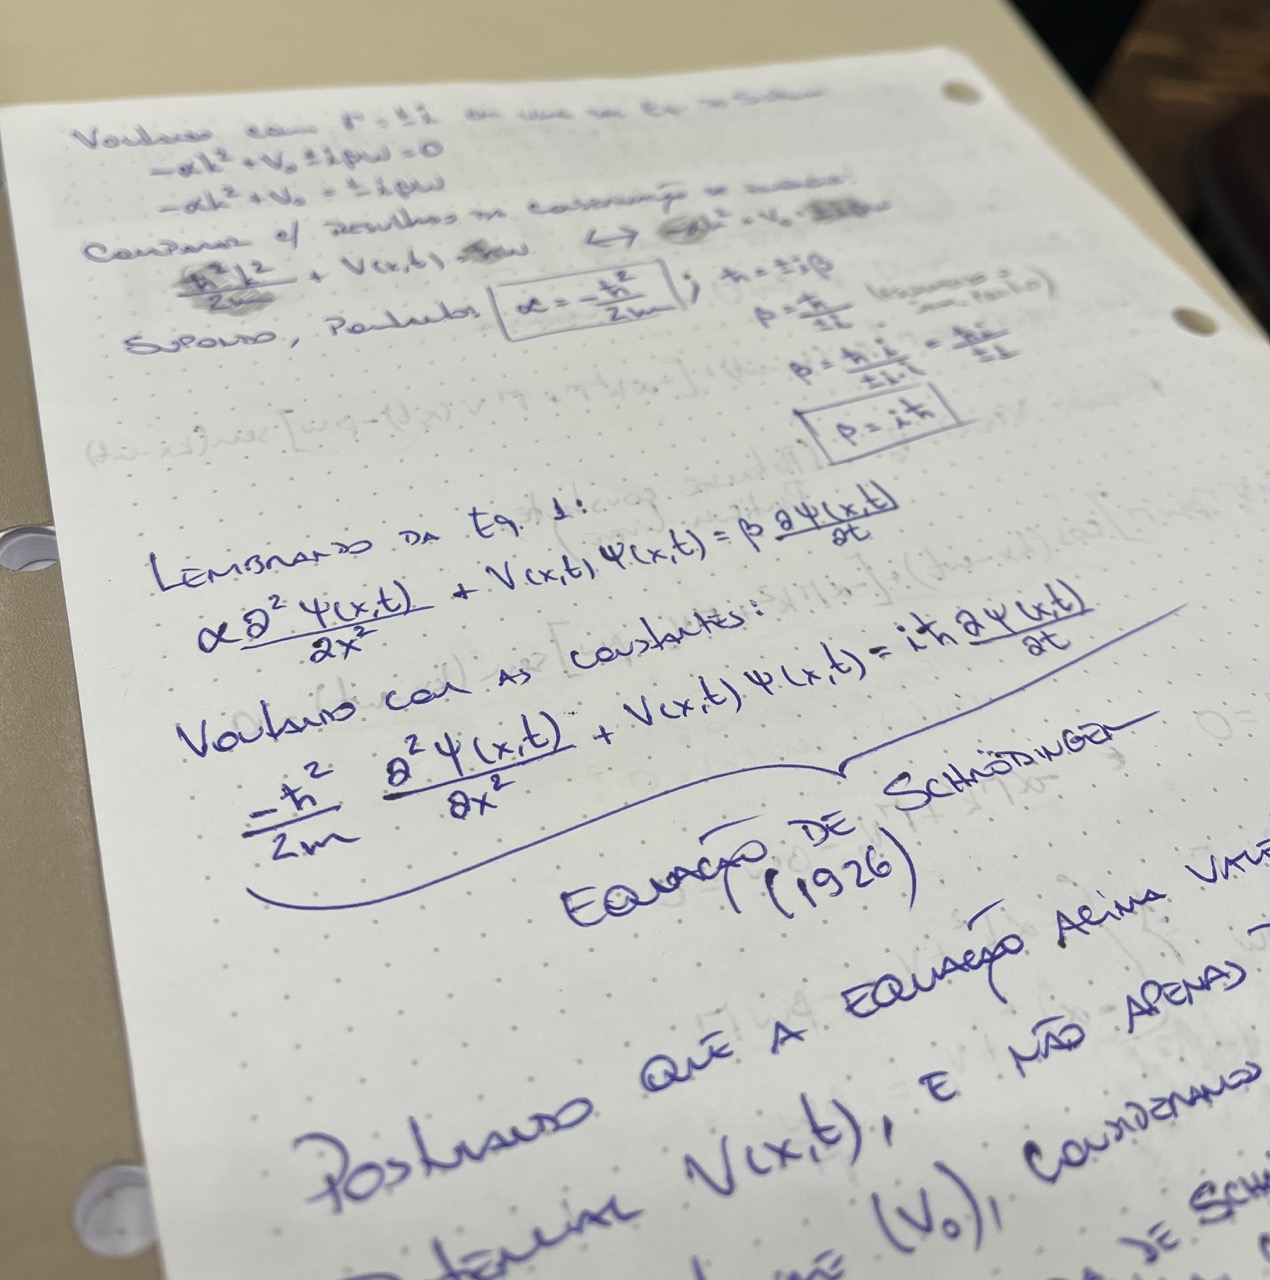 Voltando com γ = ±i
-αk² + V₀ ± iβω = 0
-αk² + V₀ = ±iβω
Comparar c/ resultado da conservação
ħ²k²/2m + V(x,t) = ħω ↔ -αk² + V₀ = ±iβω
SUPONDO, Portanto, α = -ħ²/2m ; ħ = ±iβ
β = ħ/±i
β = ħ·i/±i·i = ħi/±1
β = iħ
LEMBRANDO DA Eq. 1:
α ∂²Ψ(x,t)/∂x² + V(x,t) Ψ(x,t) = β ∂Ψ(x,t)/∂t
Voltando com AS constantes:
-ħ²/2m ∂²Ψ(x,t)/∂x² + V(x,t) Ψ(x,t) = iħ ∂Ψ(x,t)/∂t
EQUAÇÃO DE SCHRÖDINGER
(1926)
Postulando QUE A EQUAÇÃO ACIMA VALE
POTENCIAL V(x,t), E NÃO APENAS
(V₀), CONSIDERAMOS
DE SCH